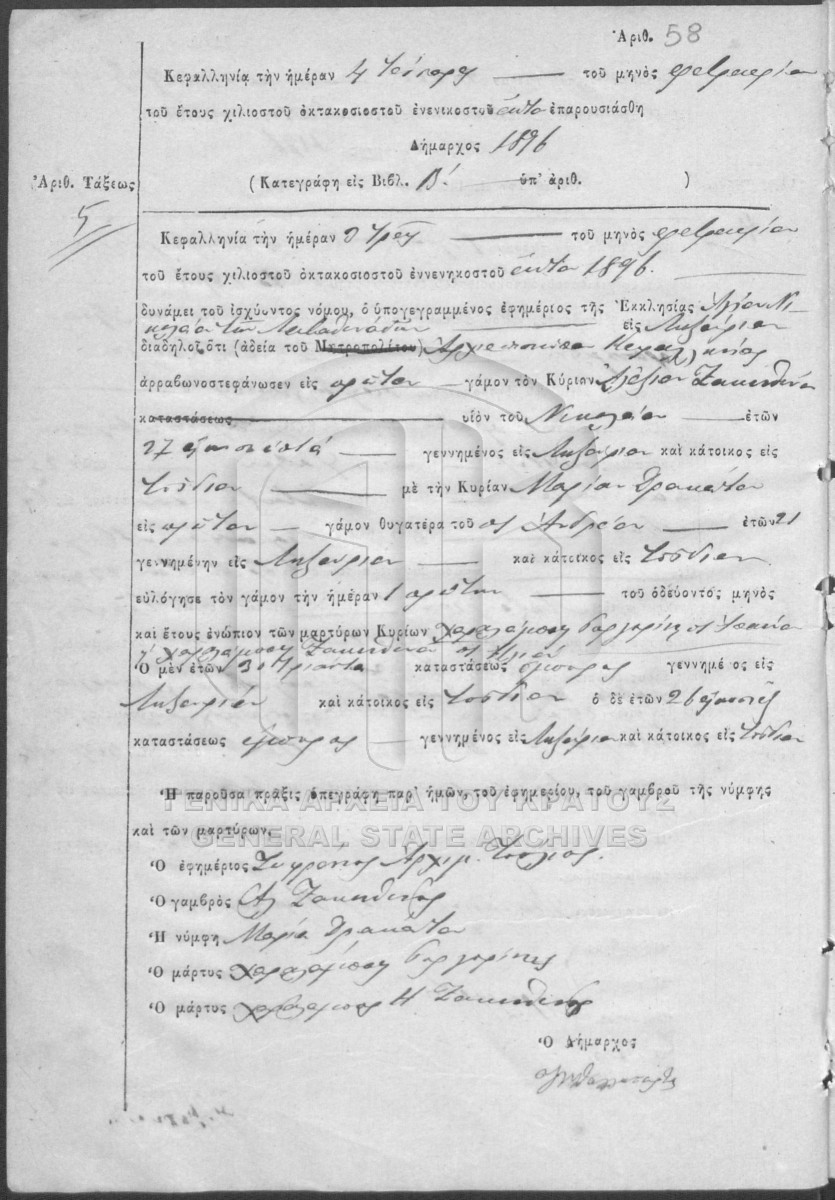 Ἀριθ. 58
Κεφαλληνίᾳ τὴν ἡμέραν 4 τέσσαρες τοῦ μηνὸς Φεβρουαρίου
τοῦ ἔτους χιλιοστοῦ ὀκτακοσιοστοῦ ἐνενικοστοῦ ἕκτου ἐπαρουσιάσθη
Δήμαρχος 1896
Ἀριθ. Τάξεως
(Κατεγράφη εἰς Βιβλ. Β΄. ὑπ' ἀριθ. )
5
Κεφαλληνίᾳ τὴν ἡμέραν 3 τρεῖς τοῦ μηνὸς Φεβρουαρίου
τοῦ ἔτους χιλιοστοῦ ὀκτακοσιοστοῦ ἐννενηκοστοῦ ἕκτου 1896.
δυνάμει τοῦ ἰσχύοντος νόμου, ὁ ὑπογεγραμμένος ἐφημέριος τῆς Ἐκκλησίας Ἁγίου Νι
κολάου τῶν εἰς Ληξούριον
διαδηλοῖ ὅτι (ἀδείᾳ τοῦ Μητροπολίτου) Ἀρχιεπισκόπου Κεφαλληνίας
ἀρραβωνοστεφάνωσεν εἰς πρῶτον γάμον τὸν Κύριον Ἀλέξιον Ζακυνθινὸν
καταστάσεως υἱὸν τοῦ Νικολάου ἐτῶν
27 εἴκοσι ἑπτά γεννημένος εἰς Ληξούριον καὶ κάτοικος εἰς
τοῦδιον μὲ τὴν Κυρίαν Μαρίαν Δρακάτου
εἰς πρῶτον γάμον θυγατέρα τοῦ Ἀνδρέου ἐτῶν 21
γεννημένην εἰς Ληξούριον καὶ κάτοικος εἰς τοῦδιον
εὐλόγησε τὸν γάμον τὴν ἡμέραν 1 πρώτην τοῦ ὁδεύοντος μηνὸς
καὶ ἔτους ἐνώπιον τῶν μαρτύρων Κυρίων Χαραλάμπου
Χαραλάμπου Ζακυνθινοῦ Ἠλιοῦ
Ὁ μὲν ἐτῶν 30 τριάντα καταστάσεως ἔμπορος γεννημένος εἰς
Ληξούριον καὶ κάτοικος εἰς τοῦδιον ὁ δὲ ἐτῶν 26 εἴκοσι ἕξ
καταστάσεως ἔμπορος γεννημένος εἰς Ληξούριον καὶ κάτοικος εἰς τοῦδιον
Ἡ παροῦσα πρᾶξις ὑπεγράφη παρ' ἡμῶν, τοῦ ἐφημερίου, τοῦ γαμβροῦ τῆς νύμφης
ΓΕΝΙΚΑ ΑΡΧΕΙΑ ΤΟΥ ΚΡΑΤΟΥΣ
καὶ τῶν μαρτύρων,
GENERAL STATE ARCHIVES
Ὁ ἐφημέριος Σωφρόνιος Ἀρχιμ.
Ὁ γαμβρὸς Ἀλ Ζακυνθινός
Ἡ νύμφη Μαρία Δρακάτου
Ὁ μάρτυς Χαραλάμπους
Ὁ μάρτυς Χαράλαμπος Η Ζακυνθινός
Ὁ Δήμαρχος